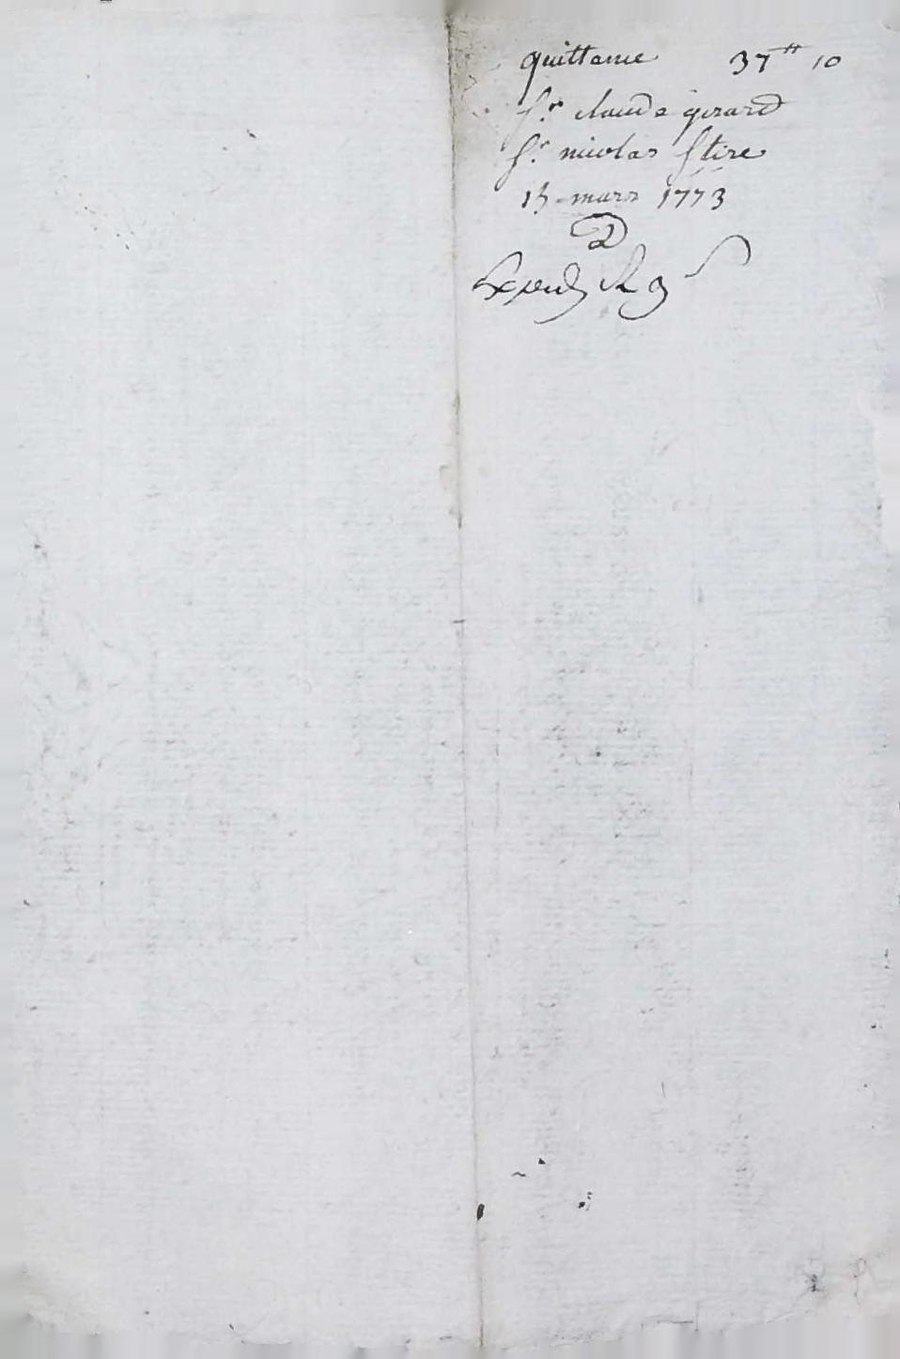 quittance 37ᵗᵗ 10
Sr. claude girard
Sr. nicolas Stire
15 mars 1773
D